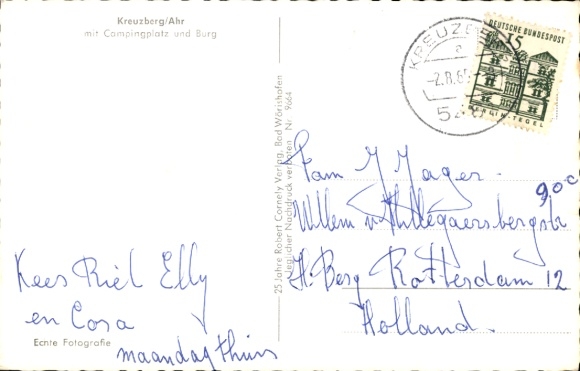 Kreuzberg/Ahr
mit Campingplatz und Burg
DEUTSCHE BUNDESPOST
15
BERLIN-TEGEL
KREUZBE
a
-2.8.65
25 Jahre Robert Cornely Verlag, Bad Wörishofen
Jeglicher Nachdruck verboten Nr. 9664
Fam J Jager.
90c
Willem v Hillegaersbergstr
H. Berg Rotterdam 12
Holland.
Kees Riel Elly
en Cora
Echte Fotografie
maandag thuis